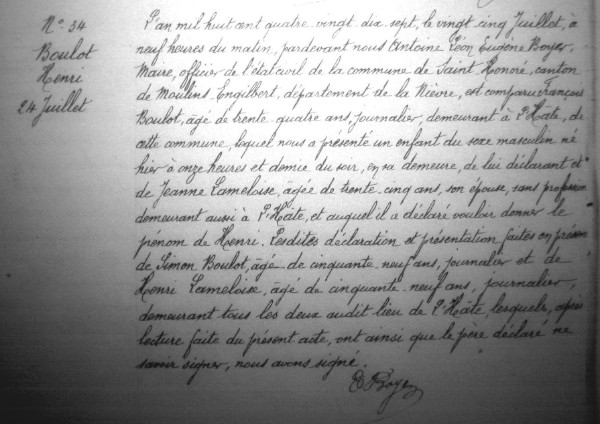 N.o 34
Boulot
Henri
24 Juillet
L'an mil huit cent quatre vingt dix sept, le vingt cinq Juillet, à
neuf heures du matin, pardevant nous Antoine Léon Eugène Boyer,
Maire, officier de l'état civil de la commune de Saint Honoré, canton
de Moulins Engilbert, département de la Nièvre, est comparu François
Boulot, âgé de trente quatre ans, journalier, demeurant à l'Hâte, de
cette commune, lequel nous a présenté un enfant du sexe masculin né
hier à onze heures et demie du soir, en sa demeure, de lui déclarant et
de Jeanne Lameloise, âgée de trente cinq ans, son épouse, sans profession
demeurant aussi à l'Hâte, et auquel il a déclaré vouloir donner le
prénom de Henri. Lesdites déclaration et présentation faites en présence
de Simon Boulot, âgé de cinquante neuf ans, journalier et de
Henri Lameloise, âgé de cinquante neuf ans, journalier,
demeurant tous les deux audit lieu de l'Hâte, lesquels, après
lecture faite du présent acte, ont ainsi que le père déclaré ne
savoir signer, nous avons signé.
E Boyer